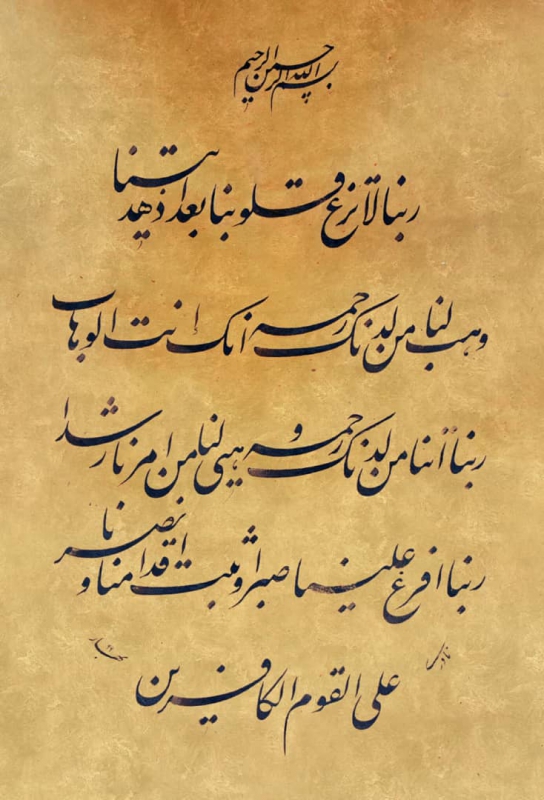 بسم الله الرحمن الرحیم
ربنا لا تزغ قلوبنا بعد اذ هدیتنا
وهب لنا من لدنک رحمه انک انت الوهاب
ربنا آتنا من لدنک رحمه و هیئ لنا من امرنا رشدا
ربنا افرغ علینا صبرا و ثبت اقدامنا و انصرنا
علی القوم الکافرین